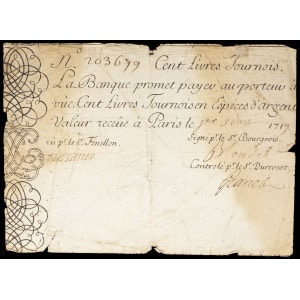 N.º 203679 Cent Livres Tournois.
La Banque promet payer au porteur a
vüe Cent Livres Tournois en Especes d'argent
Valeur receüe à Paris le 1719
vu p.r le S.r Fenellon. Signé p.r le S.r Bourgeois.
Controlé p.r le S.r Durevest